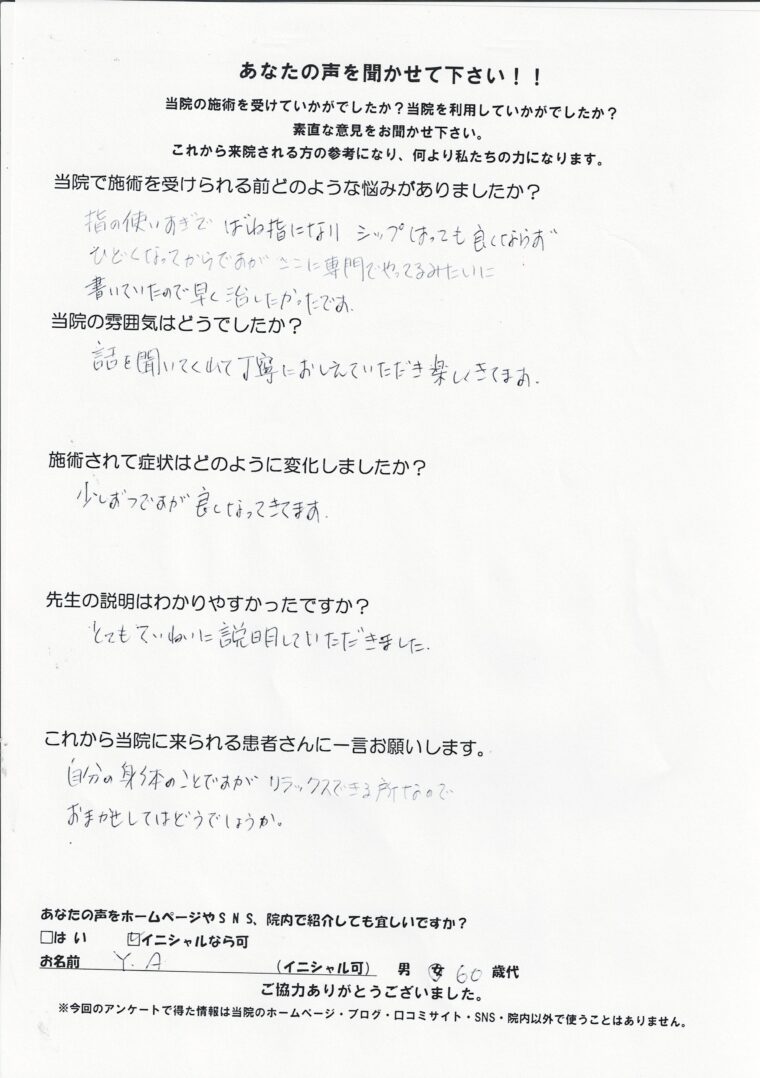 あなたの声を聞かせて下さい！！
当院の施術を受けていかがでしたか？当院を利用していかがでしたか？
素直な意見をお聞かせ下さい。
これから来院される方の参考になり、何より私たちの力になります。
当院で施術を受けられる前どのような悩みがありましたか？
指の使いすぎで ばね指になり シップはっても良くならず
ひどくなってからですが ここに専門でやってるみたいに
書いていたので早く治したかったです。
当院の雰囲気はどうでしたか？
話を聞いてくれて丁寧におしえていただき楽しくきてます。
施術されて症状はどのように変化しましたか？
少しずつですが良くなってきてます。
先生の説明はわかりやすかったですか？
とてもていねいに説明していただきました。
これから当院に来られる患者さんに一言お願いします。
自分の身体のことですが リラックスできる所なので
おまかせしてはどうでしょうか。
あなたの声をホームページやＳＮＳ、院内で紹介しても宜しいですか？
□はい ☑イニシャルなら可
お名前 Y.A （イニシャル可） 男 女 60 歳代
ご協力ありがとうございました。
※今回のアンケートで得た情報は当院のホームページ・ブログ・口コミサイト・SNS・院内以外で使うことはありません。